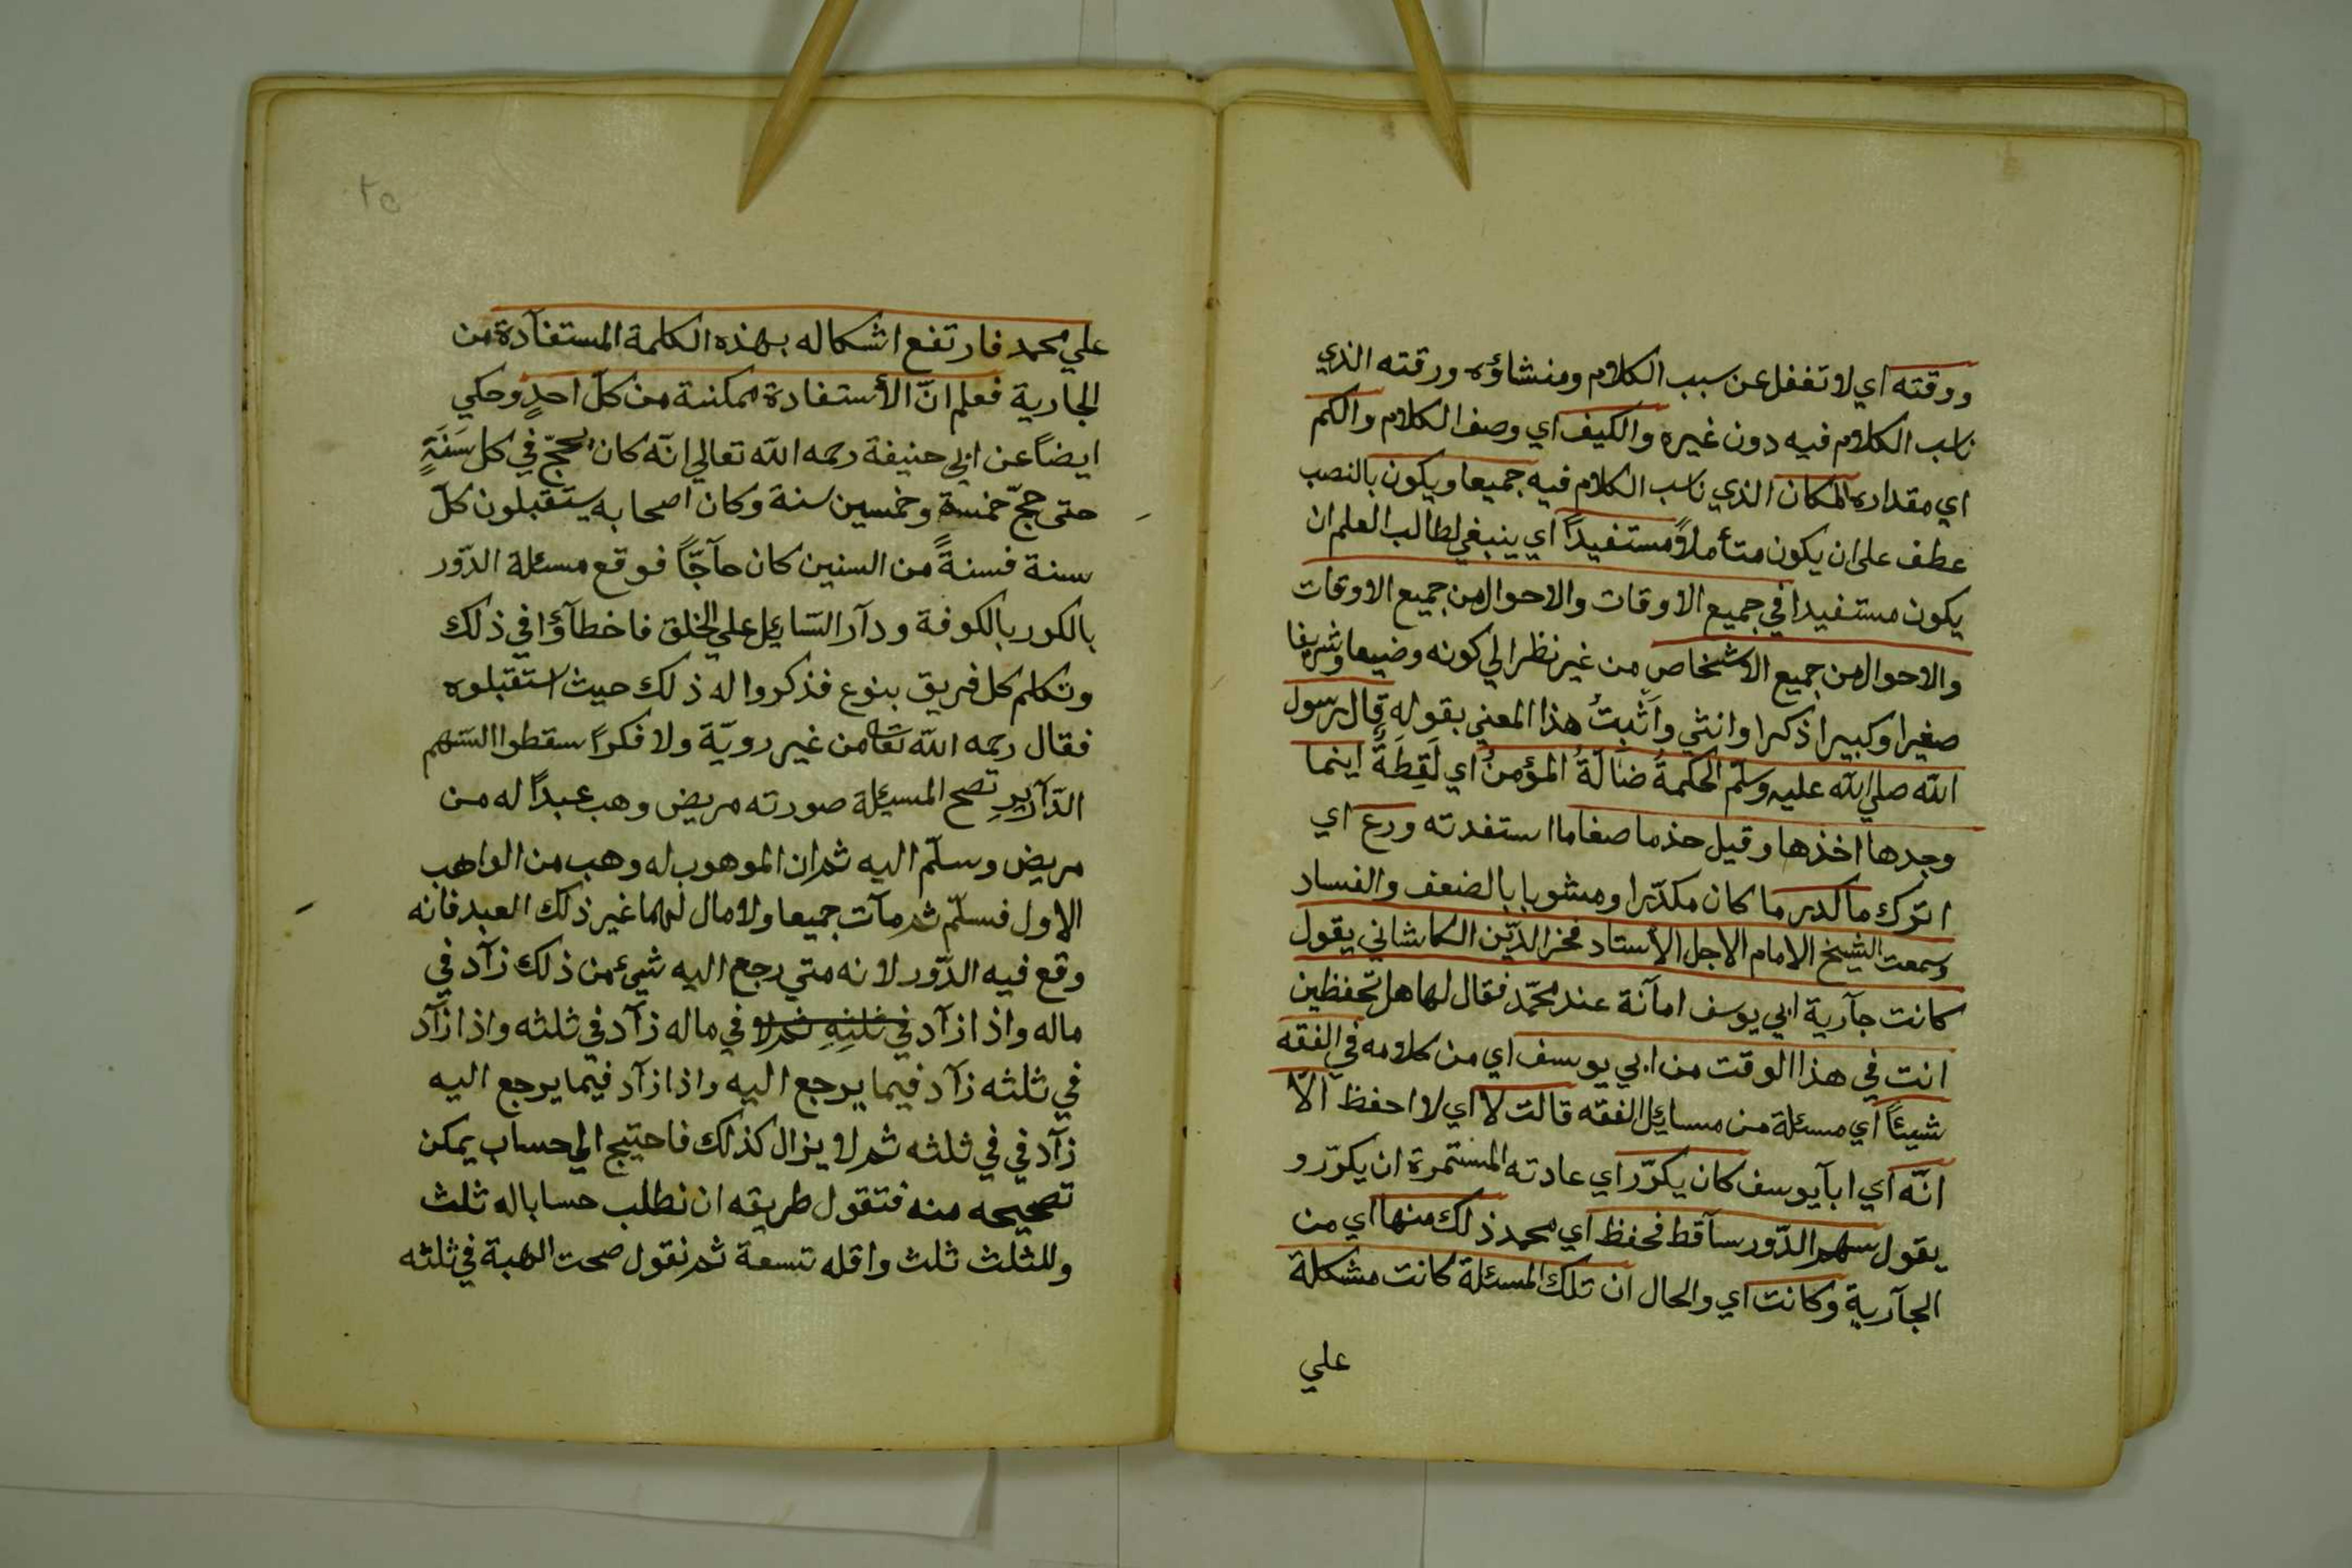 ووقته اي لا تغفل عن سبب الكلام ومنشاؤه ورقته الذي
ناسب الكلام فيه دون غيره والكيف اي وصف الكلام والكم
اي مقداره المكان الذي ناسب الكلام فيه جميعا ويكون بالنصب
عطف على ان يكون متأملاً مستفيداً اي ينبغي لطالب العلم ان
يكون مستفيدا في جميع الاوقات والاحوال من جميع الاوقات
والاحوال من جميع الاشخاص من غير نظر الي كونه وضيعا وشريفا
صغيرا وكبيرا ذكرا وانثي واثبت هذا المعني بقوله قال رسول
الله صلي الله عليه وسلم الحكمة ضالة المؤمن اي لقطة اينما
وجدها اخذها وقيل حذ ما صفا ما استفدته ودع اي
اترك ما كدر ما كان مكدّرا ومشوبا بالضعف والفساد
وسمعت الشيخ الامام الاجل الأستاد فخر الدّين الكاشاني يقول
كانت جآرية ابي يوسف امآنة عند محمّد فقال لها هل تحفظين
انت في هذا الوقت من ابي يوسف اي من كلامه في الفقه
شيئاً اي مسئلة من مسايل الفقه قالت لا اي لا احفظ الّا
انّه اي ابآ يوسف كان يكرّر اي عادته المستمرة ان يكرّر و
يقول سهم الدّور سآقط فحفظ اي محمد ذلك منها اي من
الجآرية وكانت اي والحال ان تلك المسئلة كانت مشكلة
علي
٢٥
علي محمد فارتفع اشكاله بهذه الكلمة المستفآدة من
الجارية فعلم انّ الأستفادة ممكنة من كلّ احدٍ وحكي
ايضاً عن ابي حنيفة رحمه الله تعالي انّه كان يحجّ في كل سَنَةٍ
حتى حجّ خمسة وخمسين سنة وكان اصحابه يستقبلون كلّ
سنة فسنةً من السنين كان حآجّاً فوقع مسئلة الدّور
بالكور بالكوفة ودآر السّايل علي الخلق فاخطآؤا في ذلك
وتكلم كل فريق بنوع فذكروا له ذلك حيث استقبلوه
فقال رحمه الله تعا من غير رويّة ولا فكراً سقطوا السّهم
الدّآرير تصح المسئلة صورته مريض وهب عبداً له من
مريض وسلّم اليه ثم ان الموهوب له وهب من الواهب
الاول فسلّم ثم مآت جميعا ولا مال لهما غير ذلك العبد فانه
وقع فيه الدّور لانه متي رجع اليه شيئ من ذلك زآد في
ماله واذا زآد في ثلثه ثم لا في ماله زآد في ثلثه واذا زآد
في ثلثه زآد فيما يرجع اليه واذا زآد فيما يرجع اليه
زآد في في ثلثه ثم لا يزال كذلك فاحتيج الي حساب يمكن
تصحيحه منه فتقول طريقه ان نطلب حسابا له ثلث
وللثلث ثلث واقله تسعة ثم نقول صحت الهبة في ثلثه